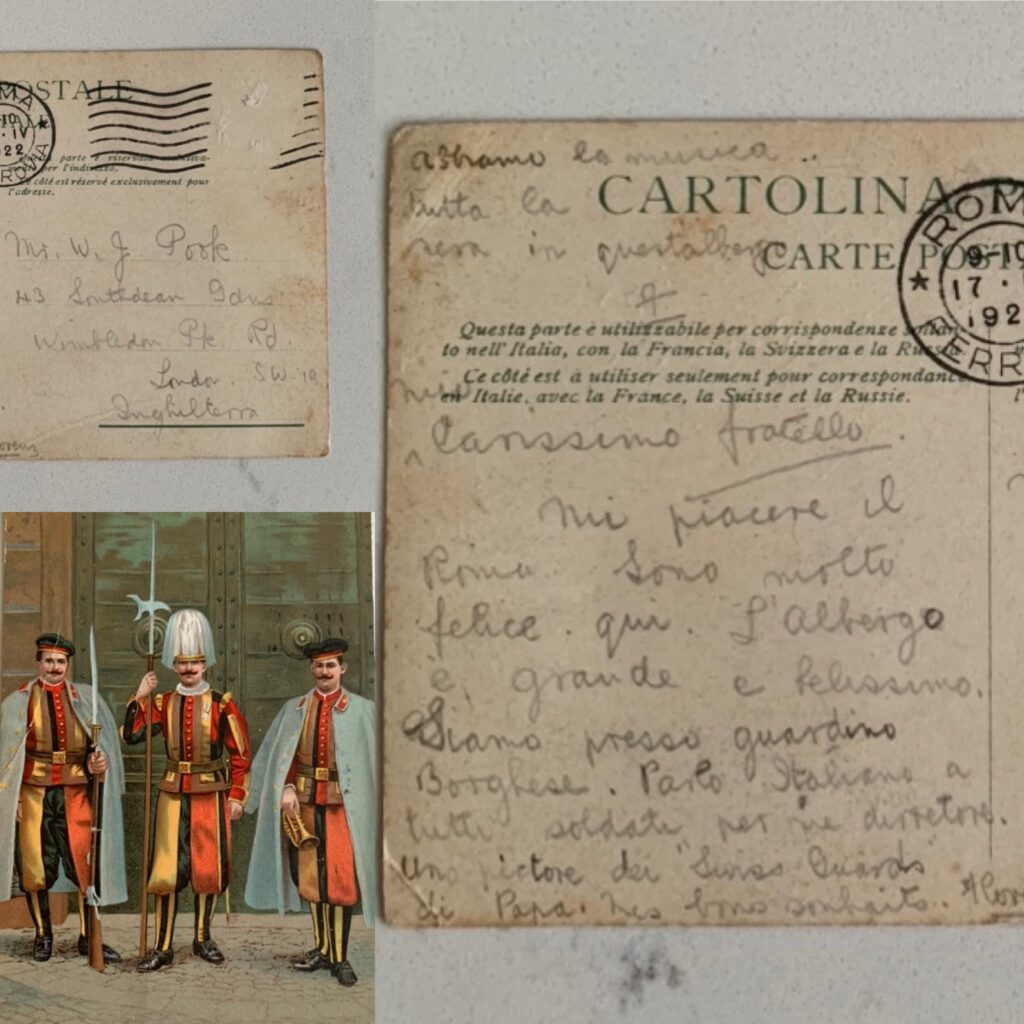 POSTALE
ROMA
9-10
17.IV
1922
FERROVIA
Questa parte è riservata esclusiva-
mente per l'indirizzo.
Ce côté est réservé exclusivement pour
l'adresse.
Mr. W. J. Pook
43 Southdean Gdns
Wimbledon Pk Rd
London. SW 19
Inghilterra
abbiamo la musica
tutta la
sera in quest'albergo
CARTOLINA
CARTE POST
ROMA
9-10
17.
192
FERR
Questa parte è utilizzabile per corrispondenze soltan-
to nell'Italia, con la Francia, la Svizzera e la Russia.
Ce côté est à utiliser seulement pour correspondance
en Italie, avec la France, la Suisse et la Russie.
mio
Carissimo fratello.
Mi piacere il
Roma. Sono molto
felice. qui. L'albergo
è grande e belissimo.
Siamo presso guardino
Borghese. Parlo Italiano a
tutti soldati per me dirretore.
Un pictore dei "Swiss Guards"
di Papa. Mes bons souhaits.